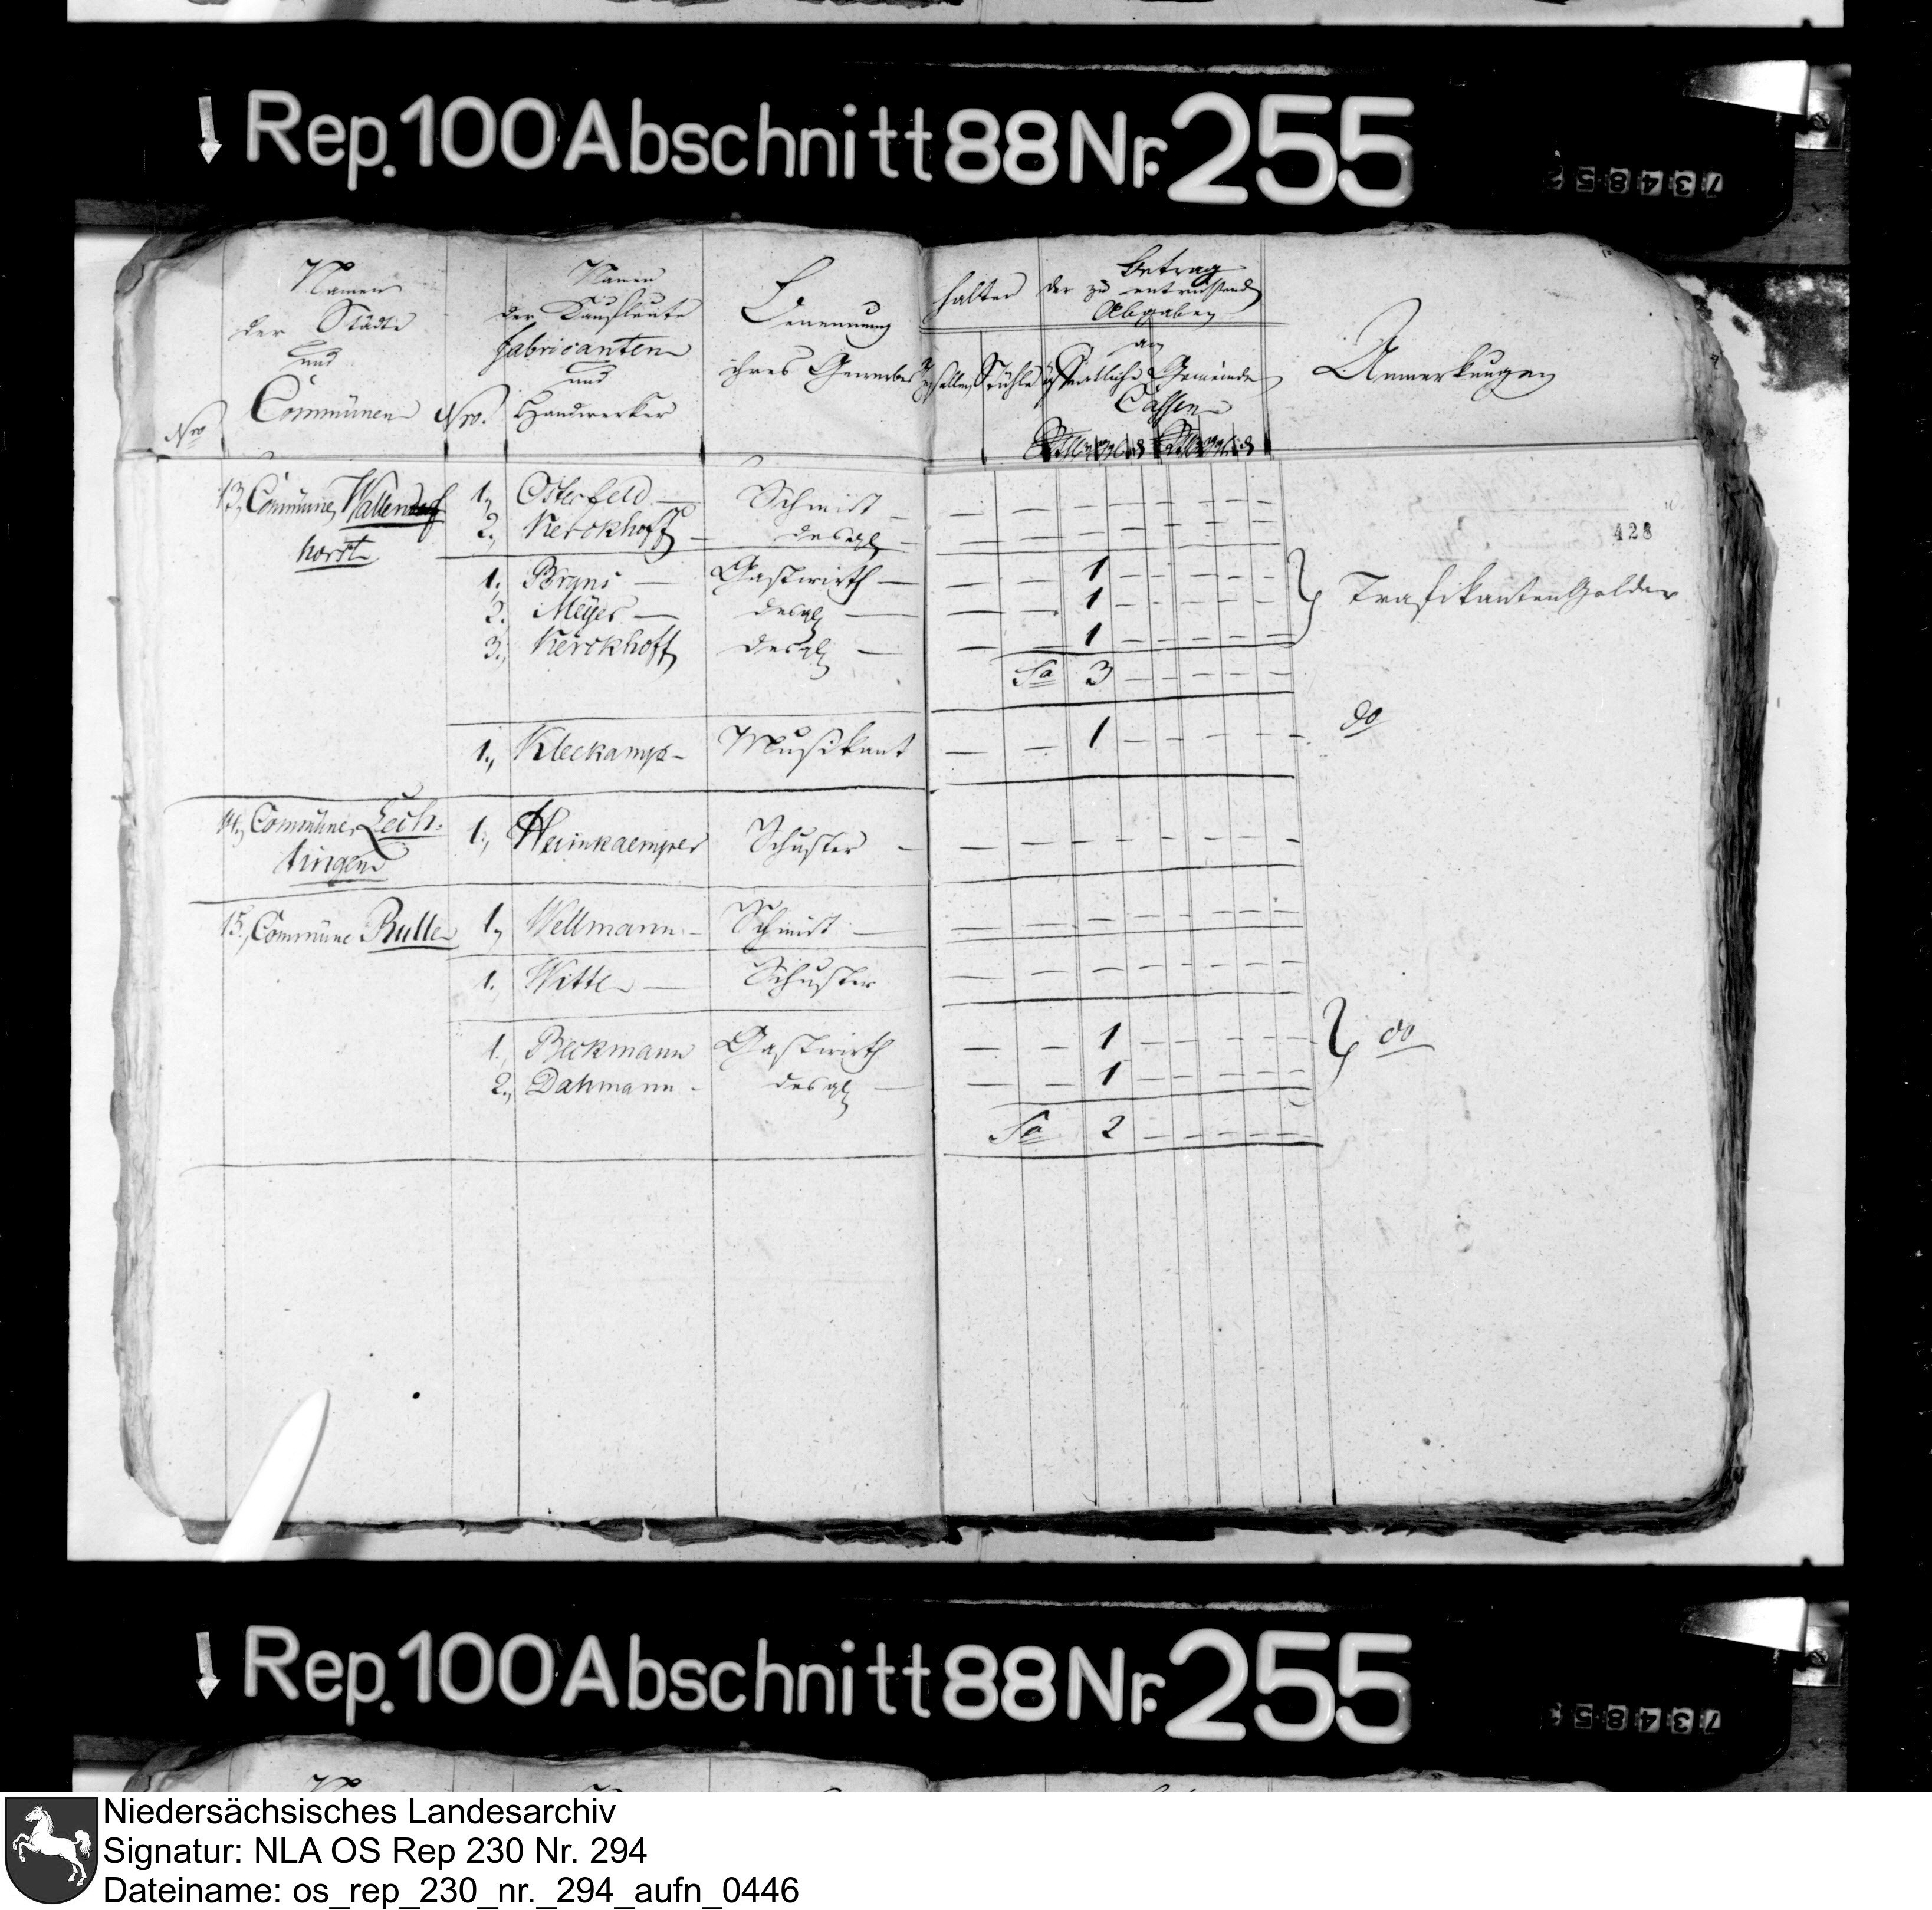 Rep. 100 Abschnitt 88 Nr. 255
Namen der Städte und Communen
Nro.
Namen der Kaufleute fabricanten und Handwerker
Benennung ihres Gewerbes
halten
Gesellen Stühle
Betrag der zu entrichtenden Abgaben
an
öffentliche Gemeinde
Cassen
Anmerkungen
428
13, Commune Wallen
horst
1, Osterfeld — Schmidt — — — — — — — —
2., Kerckhoff — desgl — — — — — — — —
1., Bryns — Gastwirth — — — 1 — — — — —
2. Meyer — desgl — — — 1 — — — — —
3., Kerckhoff desgl — — — 1 — — — — —
} Trafikanten Gelder
Sa 3 — — — — —
1., Kleekamp — Musikant — — 1 — — — — — do
14, Commune Lech-
tingen
1., Heimkaemper Schuster — — — — — — — —
15., Commune Rulle
1, Wellmann — Schmidt — — — — — — — —
1. Witte — Schuster — — — — — — — —
1., Beckmann Gastwirth — — 1 — — — — —
2., Dahmann — desgl — — — 1 — — — — —
} do
Sa 2 — — — — —
Rep. 100 Abschnitt 88 Nr. 255
Niedersächsisches Landesarchiv
Signatur: NLA OS Rep 230 Nr. 294
Dateiname: os_rep_230_nr._294_aufn_0446